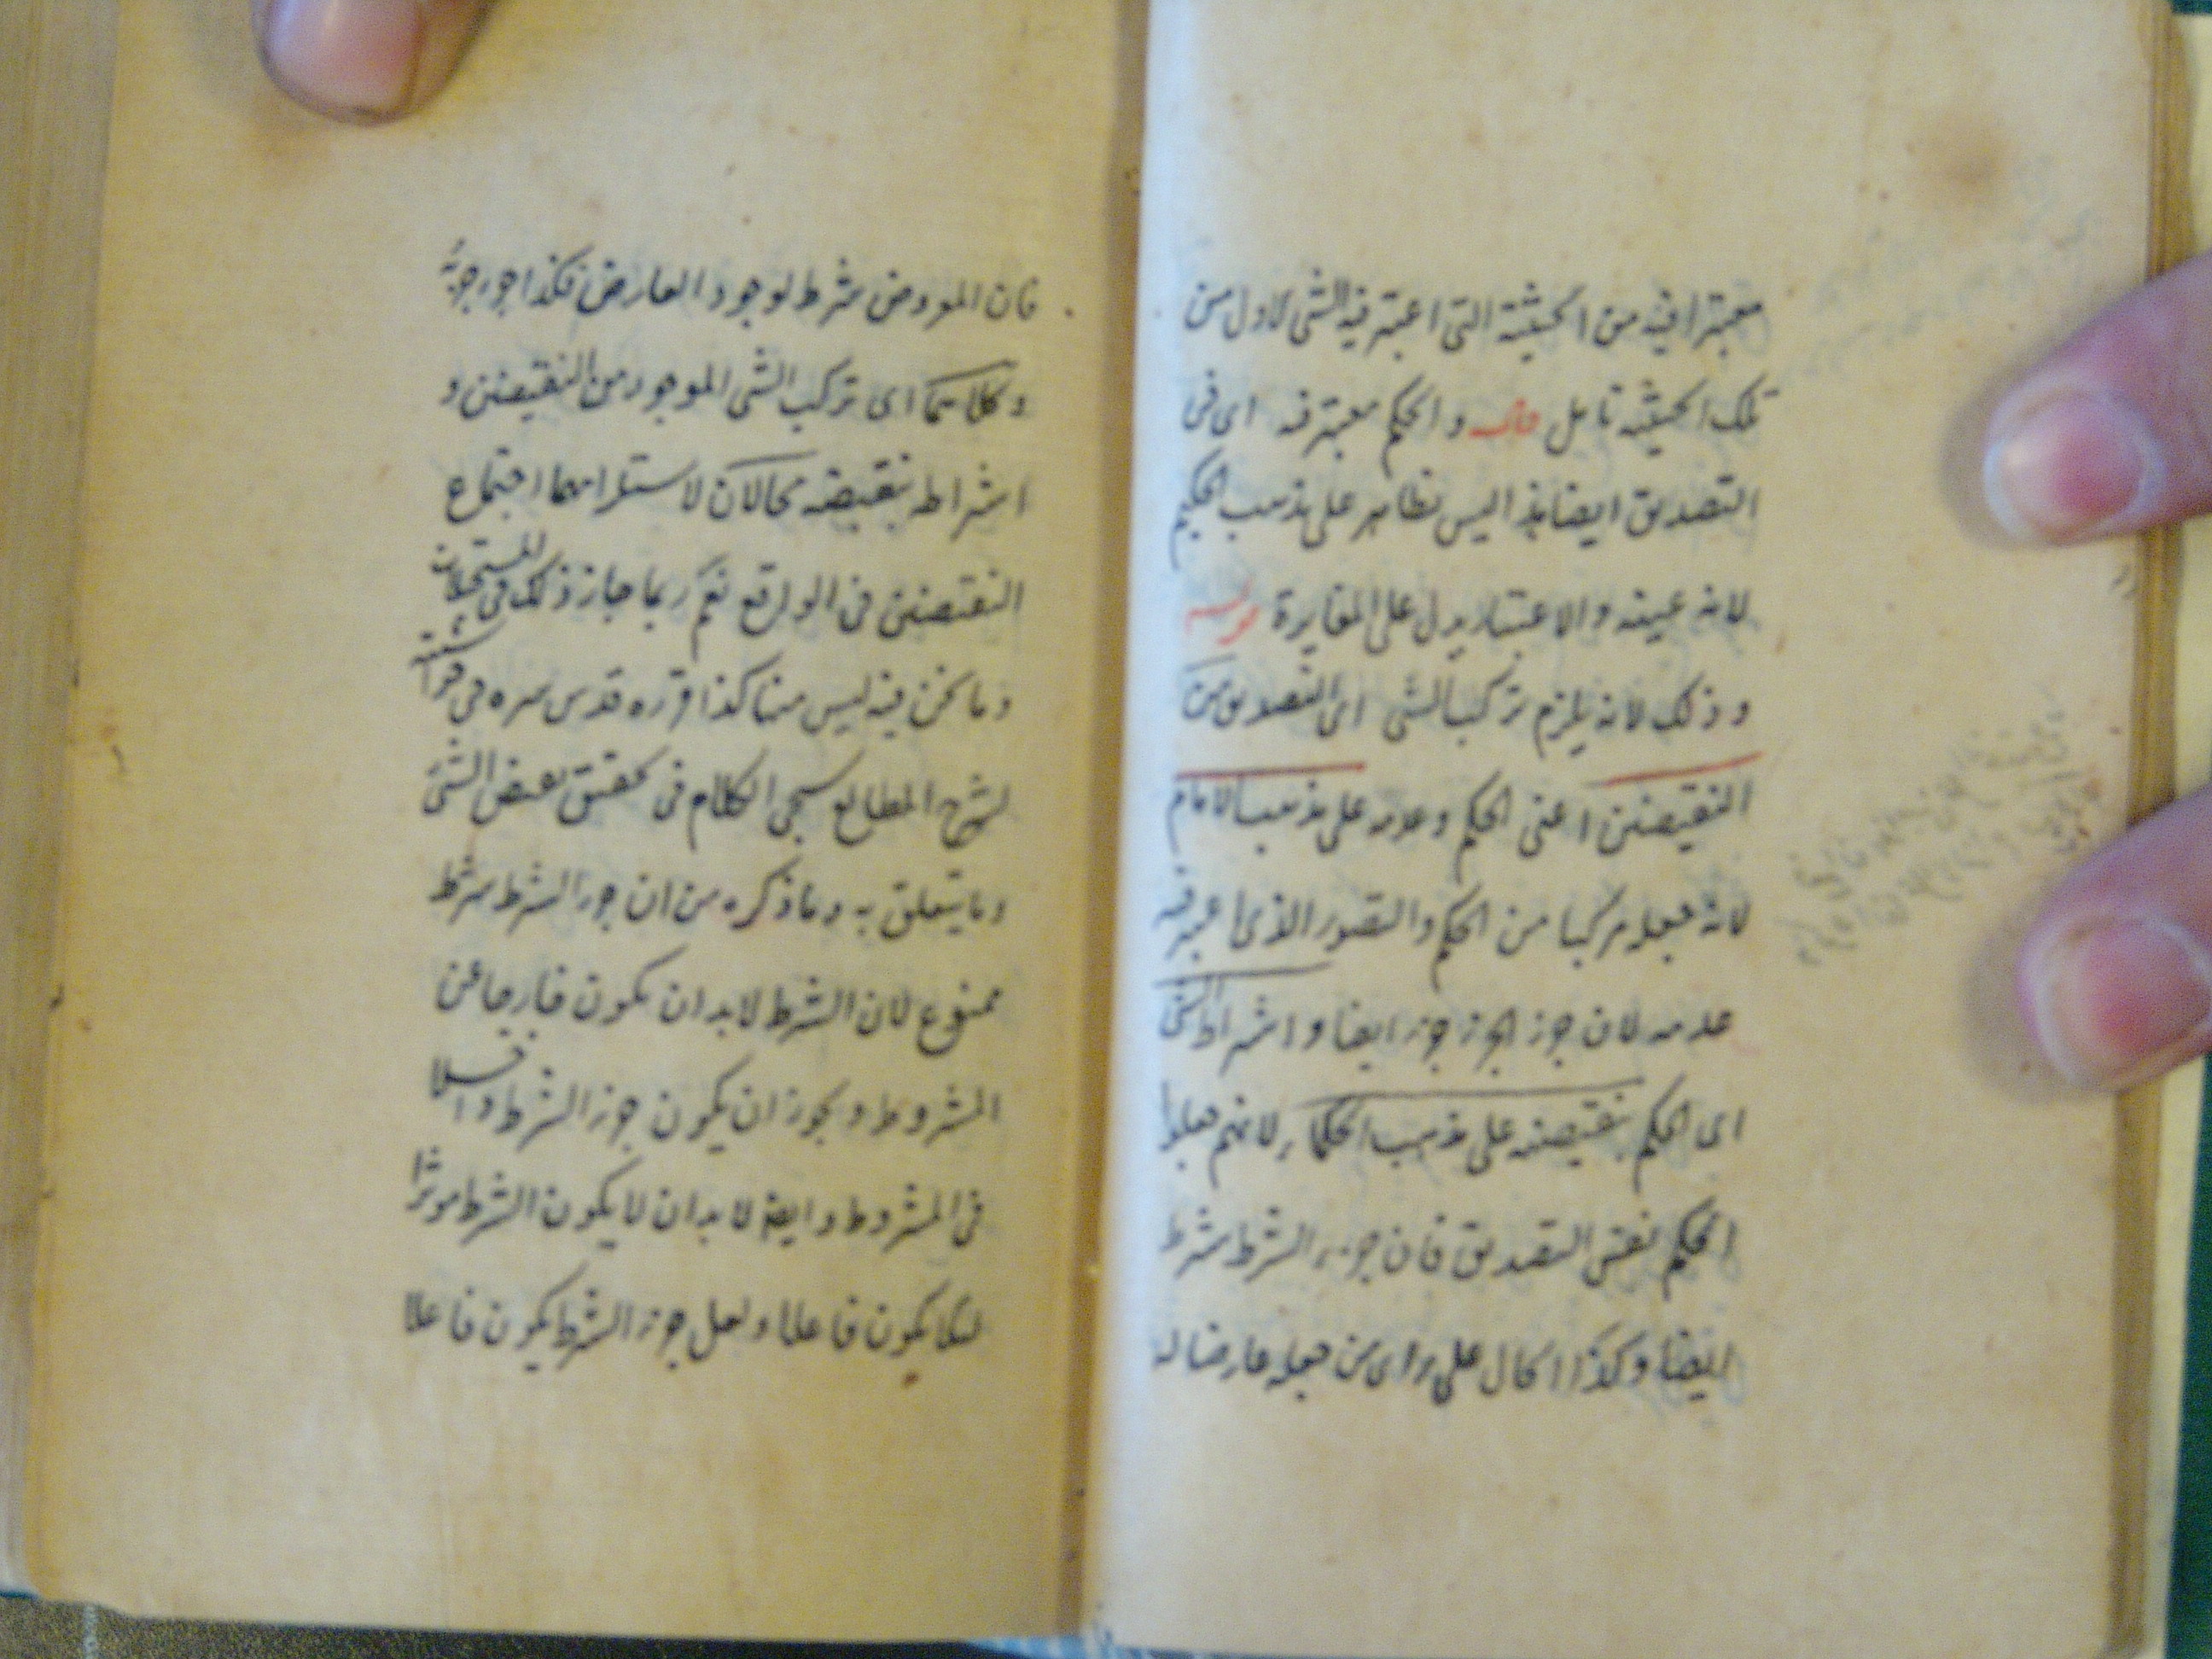 معتبرا فيه من الحيثية التى اعتبر فيه الشى الاول من
تلك الحيثية تامل قال والحكم معتبر فيه اى فى
التصديق ايضا هذا ليس بظاهر على مذهب الحكيم
لانه عينه والاعتبار يدل على المغايرة قوله
وذلك لانه يلزم تركب الشى اى التصديق من
النقيضين اعنى الحكم وعدمه على مذهب الامام
لانه جعله مركبا من الحكم والتصور الذى اعتبر فيه
عدمه لان جزء الجزء جزء ايضا واشتراط الشى
اى الحكم بنقيضه على مذهب الحكماء لانهم جعلوا
الحكم نفس التصديق فان جزء الشرط شرط
ايضا وكذا الحال على راى من جعله عارضا له
فان المعروض شرط لوجود العارض فكذا جزء جزئه
وكلاهما اى تركب الشى الموجود من النقيضين و
اشتراطه بنقيضه محالان لاستلزامهما اجتماع
النقيضين فى الواقع نعم ربما جاز ذلك فى المستحيلات
وما نحن فيه ليس منها كذا قرره قدس سره فى
لشرح المطالع سيجى الكلام فى تحقيق نقيض الشى
وما يتعلق به وما ذكره من ان جزء الشرط شرط
ممنوع لان الشرط لابد ان يكون خارجا عن
المشروط ويجوز ان يكون جزء الشرط داخلا
فى المشروط وايضا لابد ان لا يكون الشرط موثرا
لئلا يكون فاعلا ولعل جزء الشرط يكون فاعلا